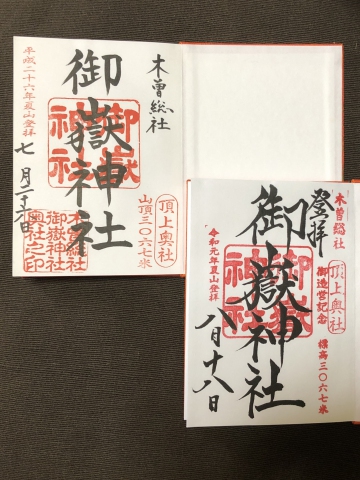 木曽総社
御嶽神社
御嶽神社
頂上奥社
山頂三〇六七米
平成二十六年夏山登拝
七月二十六日
木曽総社
御嶽神社
奥社之印
登拝
木曽総社
頂上奥社
御造営記念
標高三〇六七米
御嶽神社
御嶽神社
令和元年夏山登拝
八月十八日